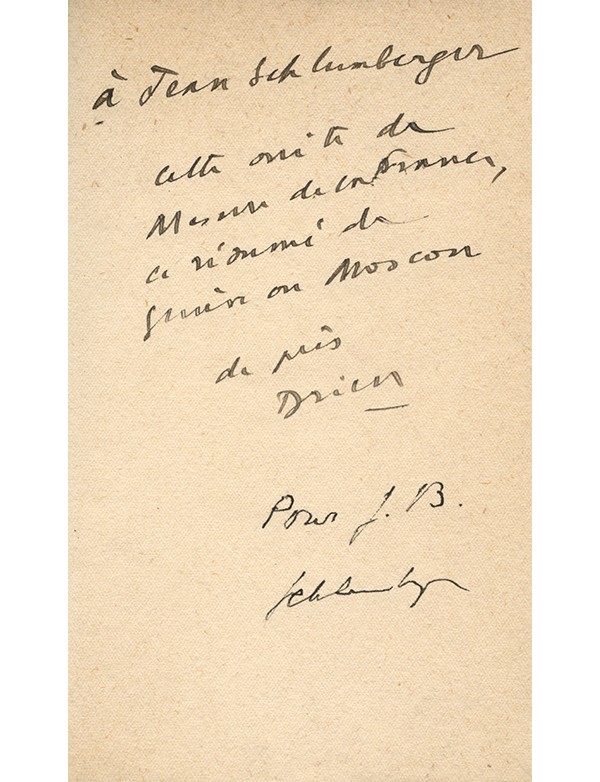 à Jean Schlumberger
cette suite de
Mesure de la France,
ce résumé de
Genève ou Moscou
de près
Drieu
Pour J. B.
Schlumberger